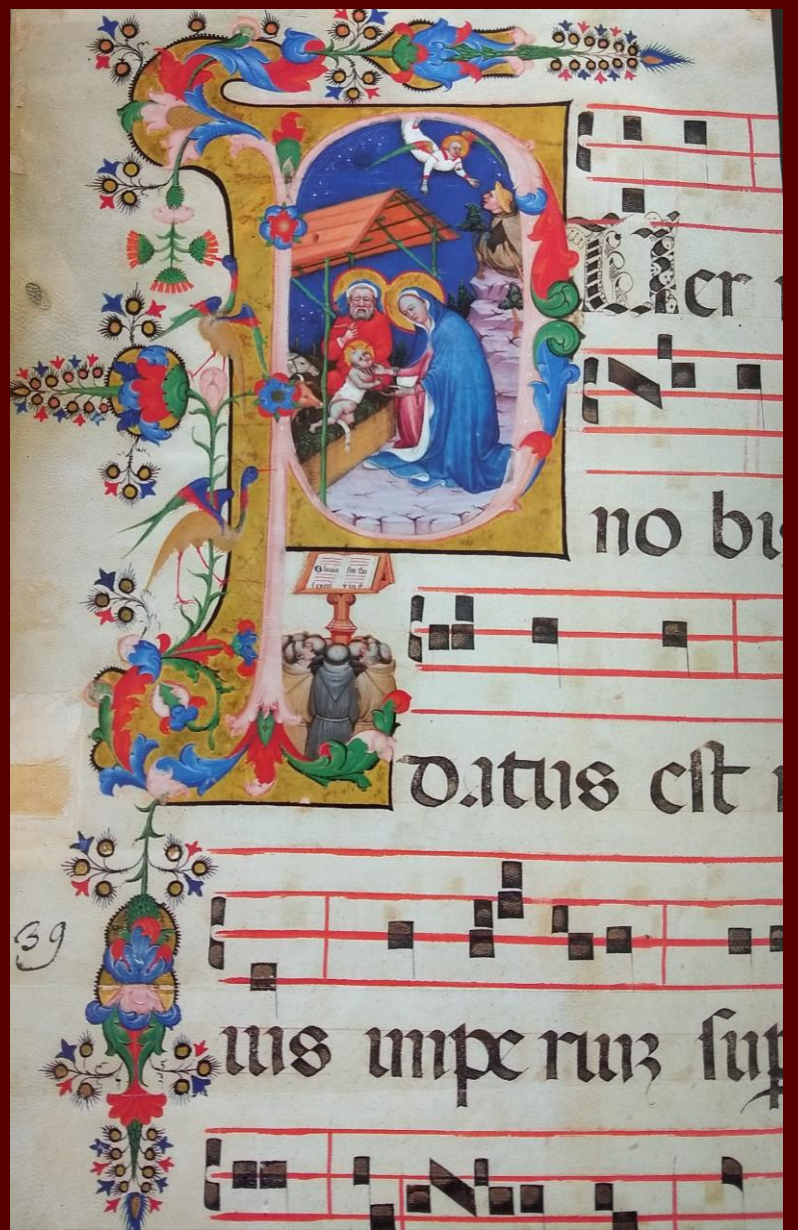 PUer
no bis
datus est
39
ius impe riuʒ sup